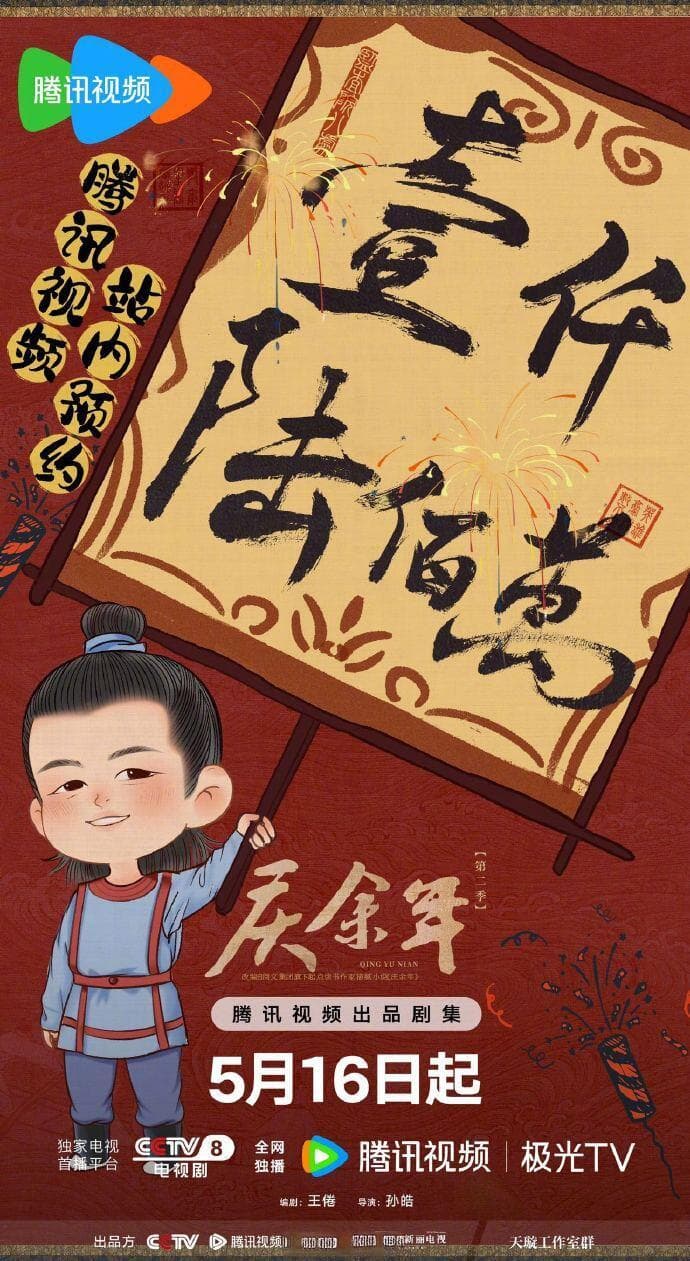 腾讯视频
腾讯视频
站内预约
壹仟
陆佰萬
庆余年
【第二季】
QING YU NIAN
改编自阅文集团旗下起点读书作家猫腻小说《庆余年》
腾讯视频出品剧集
5月16日起
独家电视
首播平台
CCTV 8
电视剧
全网
独播
腾讯视频
极光TV
编剧：王倦 导演：孙皓
出品方 CCTV 腾讯视频 新丽电视 天璇工作室群